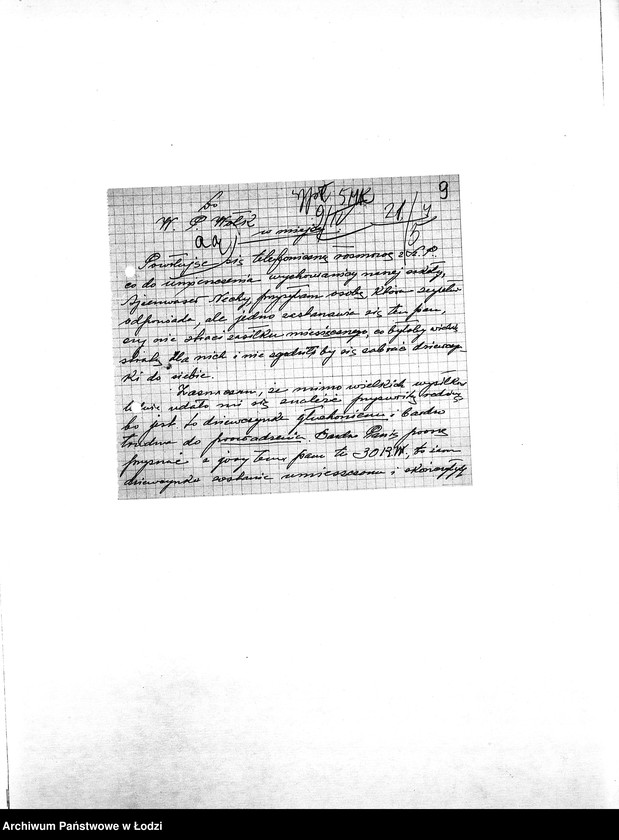 9
W. P. Wołk
w miejscu
Powołując się telefoniczną rozmową z W. P.
co do umieszczenia wychowanicy naszej szkoły,
przysyłam osobę, która zupełnie
odpowiada, ale jedno zastanawia się ten pan,
czy nie straci zasiłku miesięcznego, co byłoby wielką
stratą dla nich i nie zgodziłby się zabrać dziewczyn-
ki do siebie.
Zaznaczam, że mimo wielkich wysiłków
nie udało mi się znaleźć przyzwoitej rodziny
bo jest to dziewczynka głuchoniema i bardzo
trudna do prowadzenia. Bardzo Panią proszę
przyznać temu panu te 30 RM, to
dziewczynka zostanie umieszczona i
Archiwum Państwowe w Łodzi